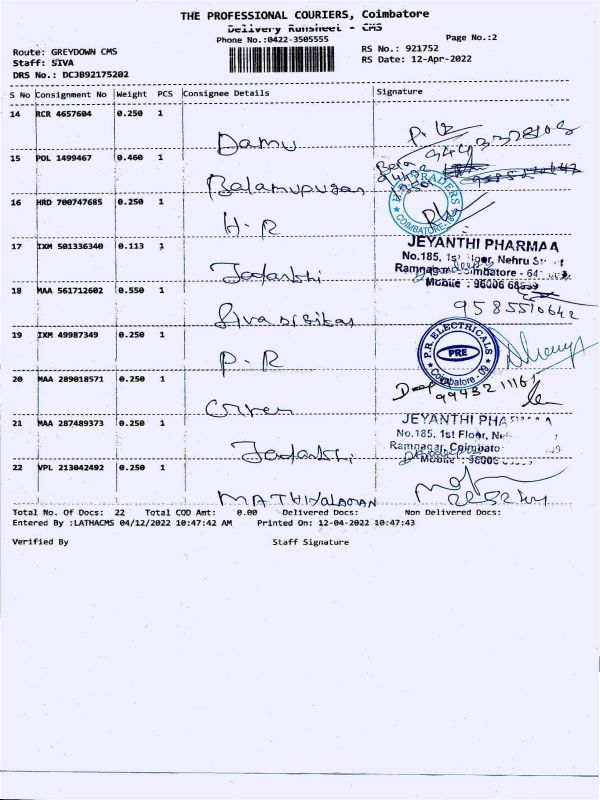 THE PROFESSIONAL COURIERS, Coimbatore
Delivery Runsheet - CMS
Phone No.:0422-3505555
Page No.:2
Route: GREYDOWN CMS
RS No.: 921752
Staff: SIVA
RS Date: 12-Apr-2022
DRS No.: DCJB92175202
S No Consignment No Weight PCS Consignee Details Signature
14 RCR 4657604 0.250 1 Damu
15 POL 1499467 0.460 1 Balamurugan
16 HRD 700747685 0.250 1 H-R
TRADERS
COIMBATORE
17 IXM 501336340 0.113 1
JEYANTHI PHARMAA
No.185, 1st Floor, Nehru St
Ramnagar, Coimbatore - 64
Mobile : 96006 68
18 MAA 561712602 0.550 1
9585510642
19 IXM 49987349 0.250 1 P-R
P.R. ELECTRICALS
PRE
Coimbatore - 09
20 MAA 289018571 0.250 1
21 MAA 287489373 0.250 1
JEYANTHI PHA
No.185, 1st Floor, Ne
Ramnagar, Coimbato
Mobile : 96006
22 VPL 213042492 0.250 1 MATHIYALAGAN
Total No. Of Docs: 22 Total COD Amt: 0.00 Delivered Docs: Non Delivered Docs:
Entered By :LATHACMS 04/12/2022 10:47:42 AM Printed On: 12-04-2022 10:47:43
Verified By Staff Signature